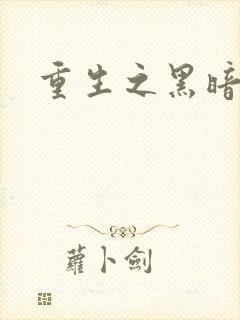 重生之黑暗
蘿卜劍